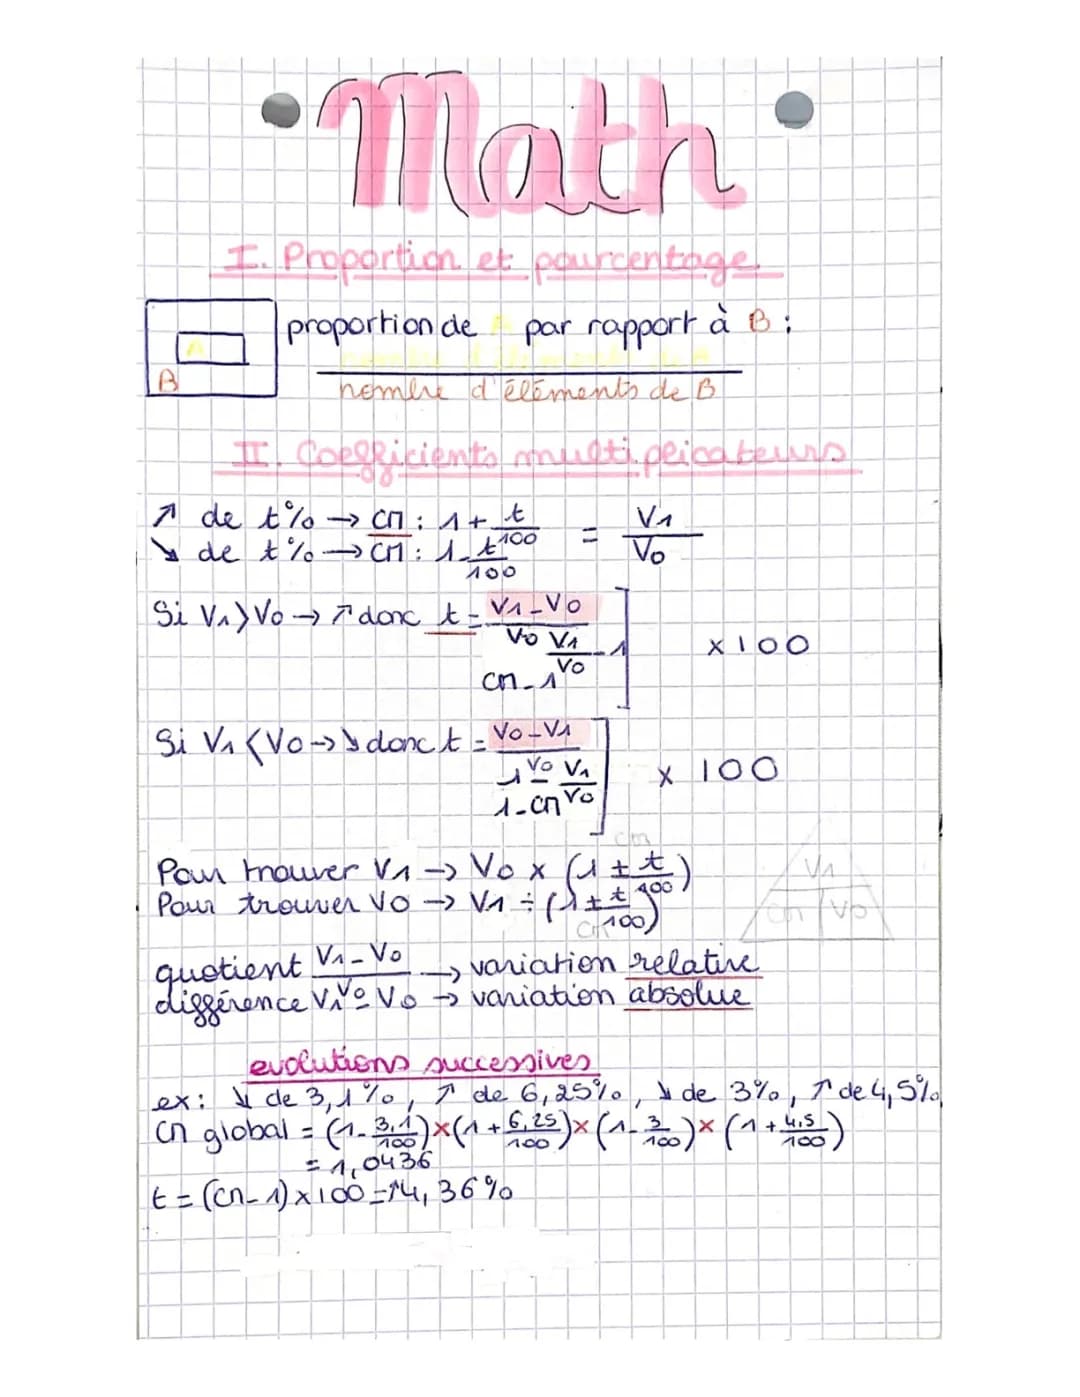 Math
I. Proportion et pourcentage
A
B
proportion de A par rapport à B :
nombre d'éléments de A
nombre d'éléments de B
II. Coefficients multiplicateurs
↗ de t% → CM : 1 + t/100 = V1/V0
↘ de t% → CM : 1 - t/100
Si V1 > V0 → ↗ donc t = V1-V0/V0
V1/V0 - 1
CM - 1
x 100
Si V1 < V0 → ↘ donc t = V0-V1/V0
1 - V1/V0
1 - CM
x 100
CM
Pour trouver V1 → V0 x (1 ± t/100)
Pour trouver V0 → V1 ÷ (1 ± t/100)
CM
V1
CM V0
quotient V1-V0/V0 → variation relative
différence V1 - V0 → variation absolue
evolutions successives
ex : ↘ de 3,1%, ↗ de 6,25%, ↘ de 3%, ↗ de 4,5%
CM global = (1 - 3,1/100) x (1 + 6,25/100) x (1 - 3/100) x (1 + 4,5/100)
= 1,0436
t = (CM - 1) x 100 = ↑4,36%